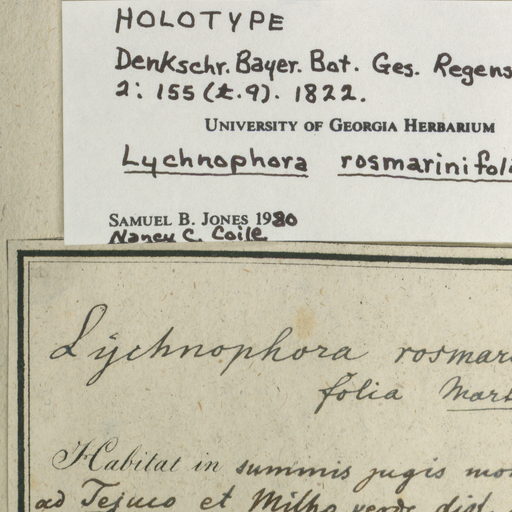 HOLOTYPE
Denkschr. Bayer. Bot. Ges. Regens
2: 155 (t.9). 1822.
UNIVERSITY OF GEORGIA HERBARIUM
Lychnophora rosmarinifoli
SAMUEL B. JONES 1980
Nancy C. Coile
Lychnophora rosmar
folia Mart
Habitat in summis jugis mon
ad Tejuco et Milho verde dist.